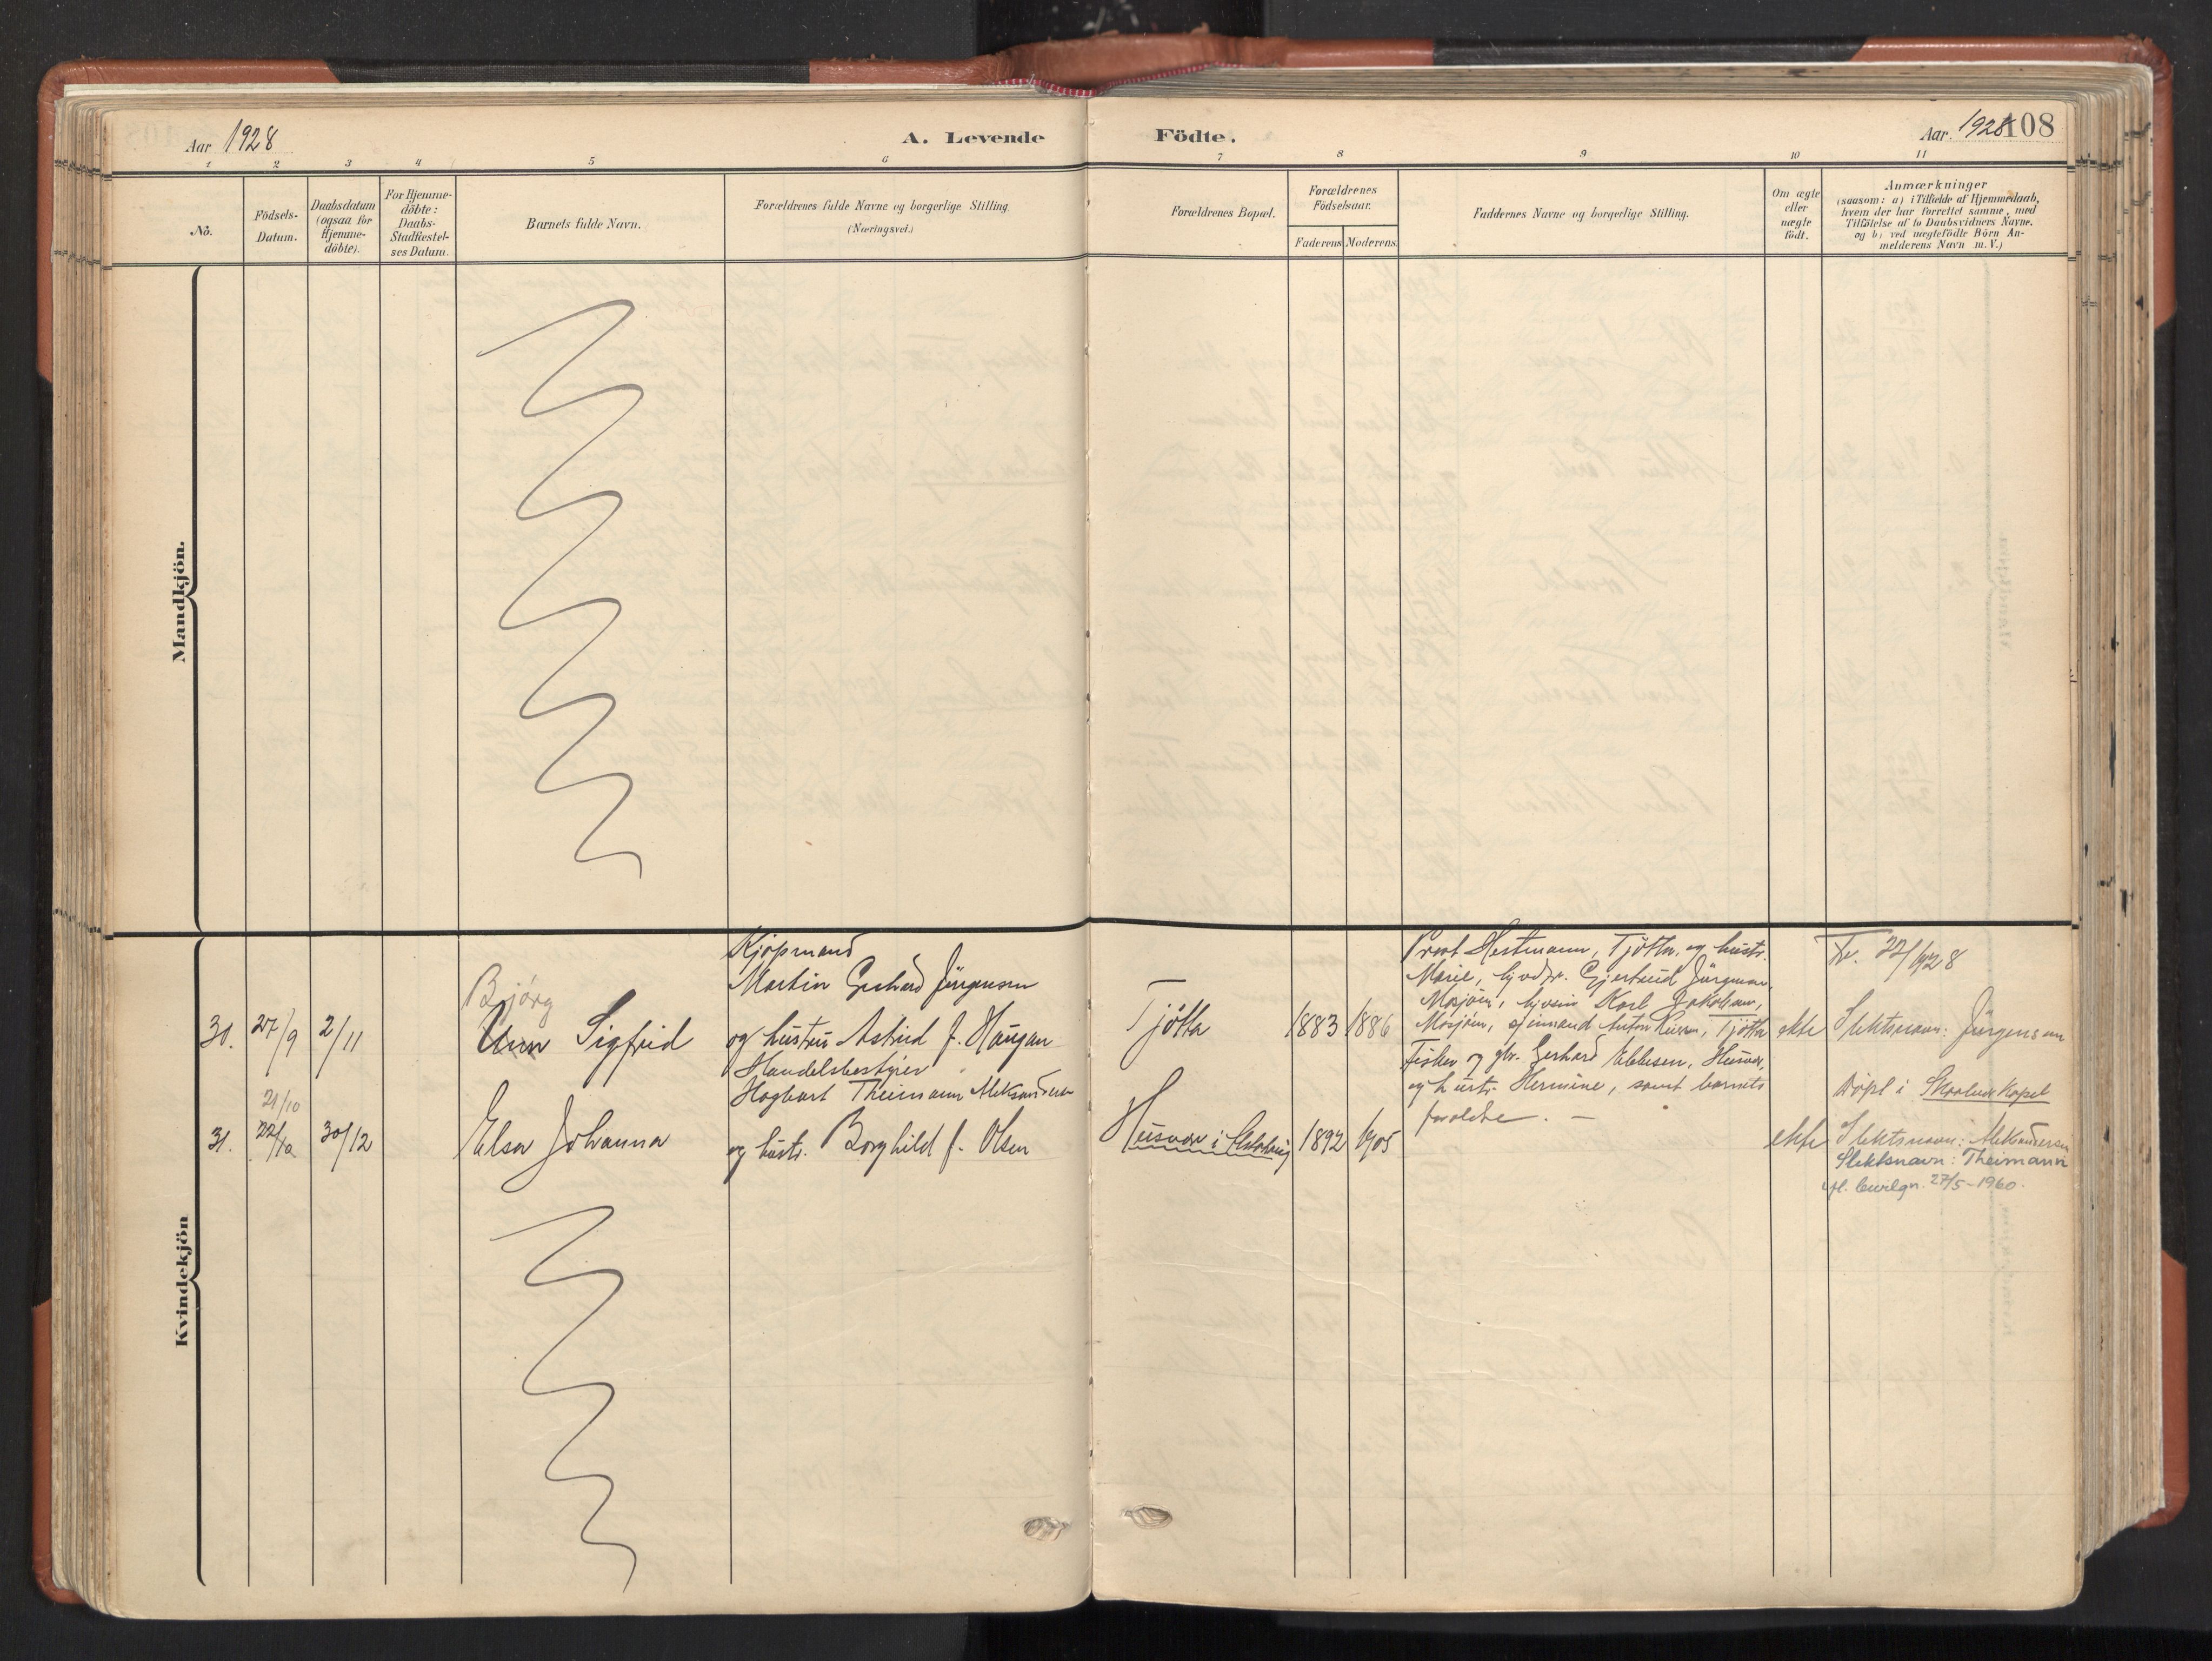 Aar 1928
A. Levende Födte.
Aar. 1928 108
1 2 3 4 5 6 7 8 9 10 11
No.
Födsels-
Datum.
Daabsdatum
(ogsaa for
Hjemme-
döbte).
For Hjemme-
döbte:
Daabs-
Stadfæstel-
ses Datum.
Barnets fulde Navn.
Forældrenes fulde Navne og borgerlige Stilling.
(Næringsvei.)
Forældrenes Bopæl.
Forældrenes
Födselsaar.
Faderens Moderens.
Faddernes Navne og borgerlige Stilling.
Om ægte
eller
uægte
födt.
Anmærkninger
(saasom: a) i Tilfælde af Hjemmedaab,
hvem der har forrettet samme, med
Tilföielse af to Daabsvidners Navne.
og b) ved uægtefödte Börn An-
melderens Navn m. V.)
Mandkjön.
Kvindekjön
30.
27/9
2/11
Bjørg
Unn Sigfrid
Kjøpmand
Martin Gerhard Jürgensen
og hustru Astrid f. Haugan
Tjøtta
1883 1886
Prost Hestmann, Tjøtta, og hustr.
Marie, Gjertrud Jürgensen,
Mosjøen, Karl Jakobsen,
Mosjøen, Anton Tjøtta
ekte
22/1928
Slektsnavn: Jürgensen
31.
21/10
22/10
30/12
Elsa Johanna
Handelsbestyrer
Hagbart Theimann Aleksandersen
og hustr. Borghild f. Olsen
Husvær i
1892 1905
Fisker og gbr. Gerhard Ebbesen, Husvær,
og hustr. Hermine, samt barnets
foreldre. —
ekte
Døpt i Skaalvær Kapel
Slektsnavn: Aleksandersen
Slektsnavn: Theimann
ifl. bevilgn. 27/5-1960.